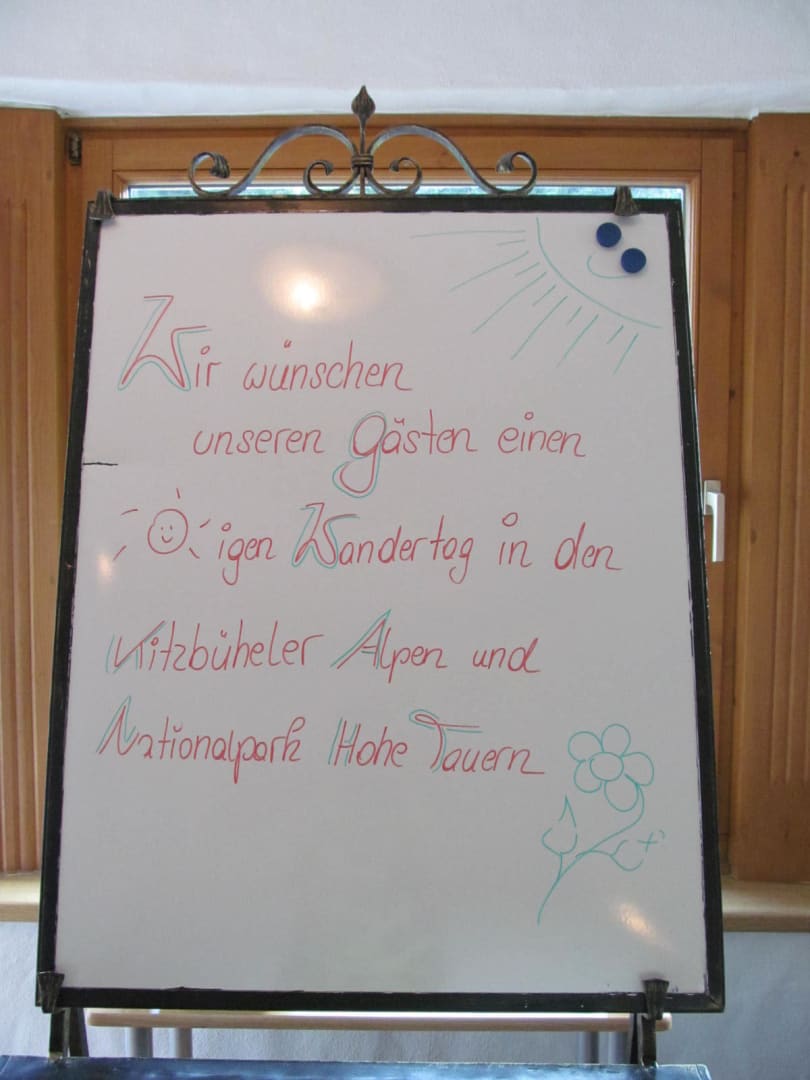 Wir wünschen
unseren Gästen einen
igen Wandertag in den
Kitzbüheler Alpen und
Nationalpark Hohe Tauern